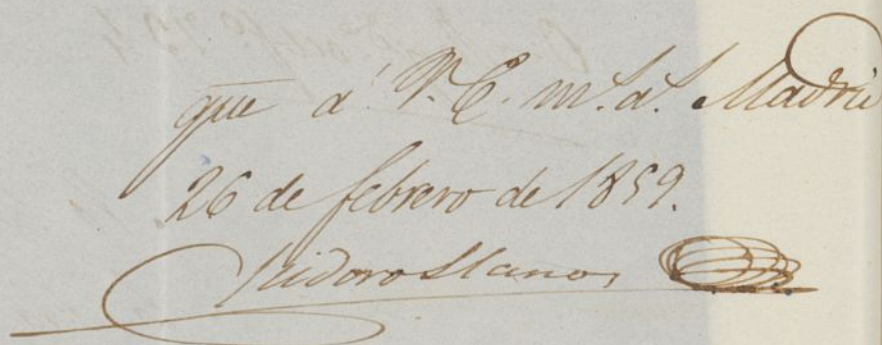 que á V. E. m.s a.s Madrid
26 de febrero de 1859.
Isidoro Llanos